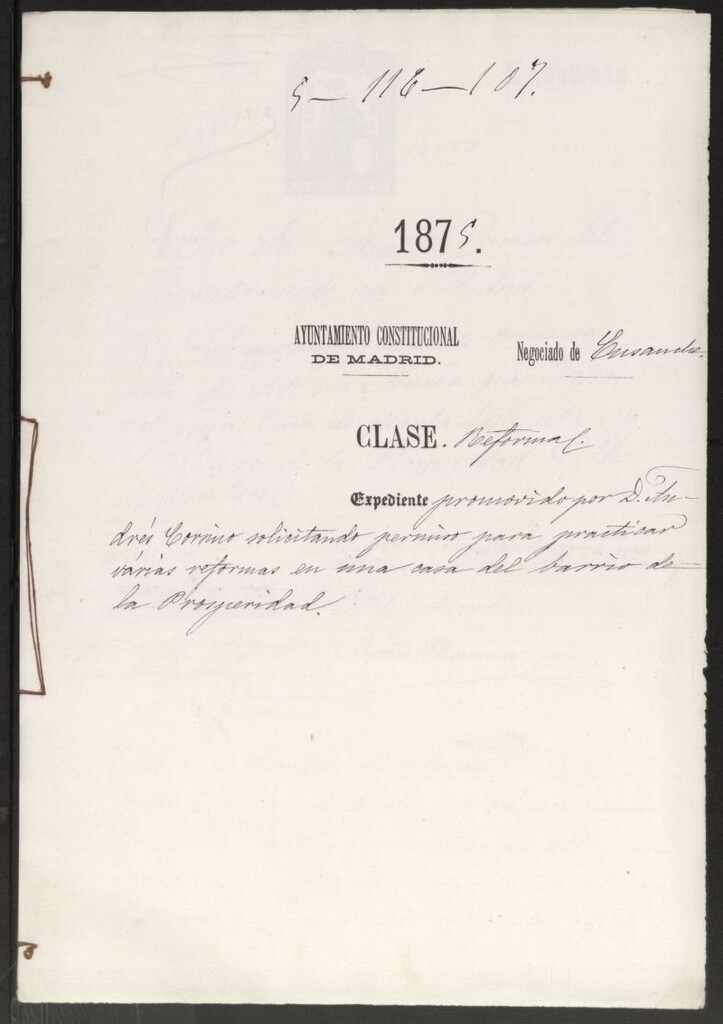 5-116-107.
1875.
AYUNTAMIENTO CONSTITUCIONAL
DE MADRID.
Negociado de Ensanche.
CLASE. Reformas.
Expediente promovido por D. An-
drés Corsino solicitando permiso para practicar
várias reformas en una casa del barrio de
la Prosperidad.